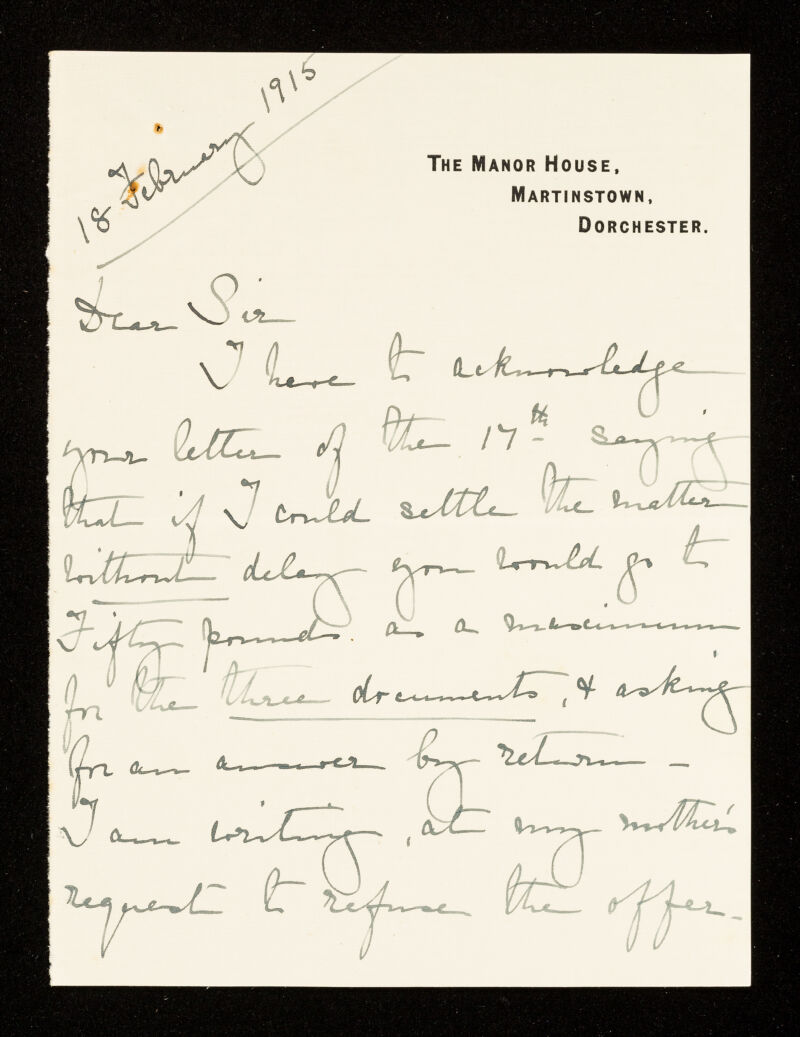 18 February 1915
THE MANOR HOUSE,
MARTINSTOWN,
DORCHESTER.
Dear Sir
I have to acknowledge
your letter of the 17th saying
that if I could settle the matter
without delay you would go to
Fifty pounds. as a maximum
for the three documents, & asking
for an answer by return -
I am writing, at my mother's
request to refuse the offer -